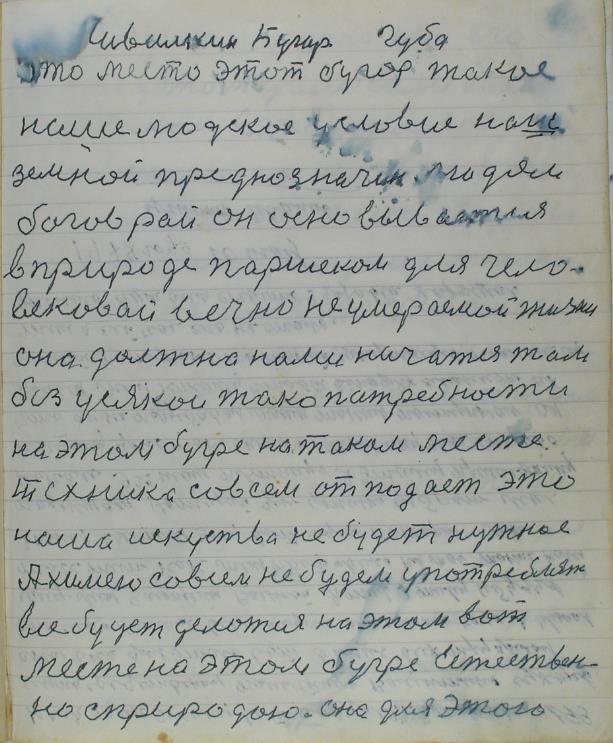 Чивилкин Бугар Губа
это место этот бугор такое
наше людское условие наш
земной предназначин людям
богов рай он основывается
в природе паршеком для чело-
вековай вечно неумераемой жизни
она должна нами начатся там
без усякой тако патребности
на этом бугре на таком месте.
техника совсем отпадает это
наша искуства не будет нужное
А химею совсем не будем употреблят
все будет делатся на этом вот
месте на этом бугре Естествен-
но сприродою. она для этого